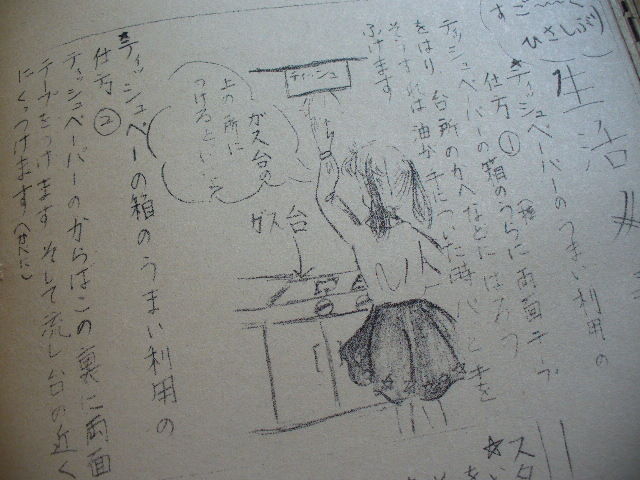 すご〜く
ひさしぶり
生活
★ティッシュペーパーのうまい利用の
仕方①
ティッシュペーパーの箱のうらに両面テープ
をはり、台所のかべなどにはろう
そうすれば油が手についた時パッと手を
ふけます
ティッシュ
ガス台の
上の所に
つけるといいぞ
ガス台
★ティッシュペーパーの箱のうまい利用の
仕方②
ティッシュペーパーのからばこの裏に両面
テープをつけます そして流し台の近く
にくっつけます
スタ